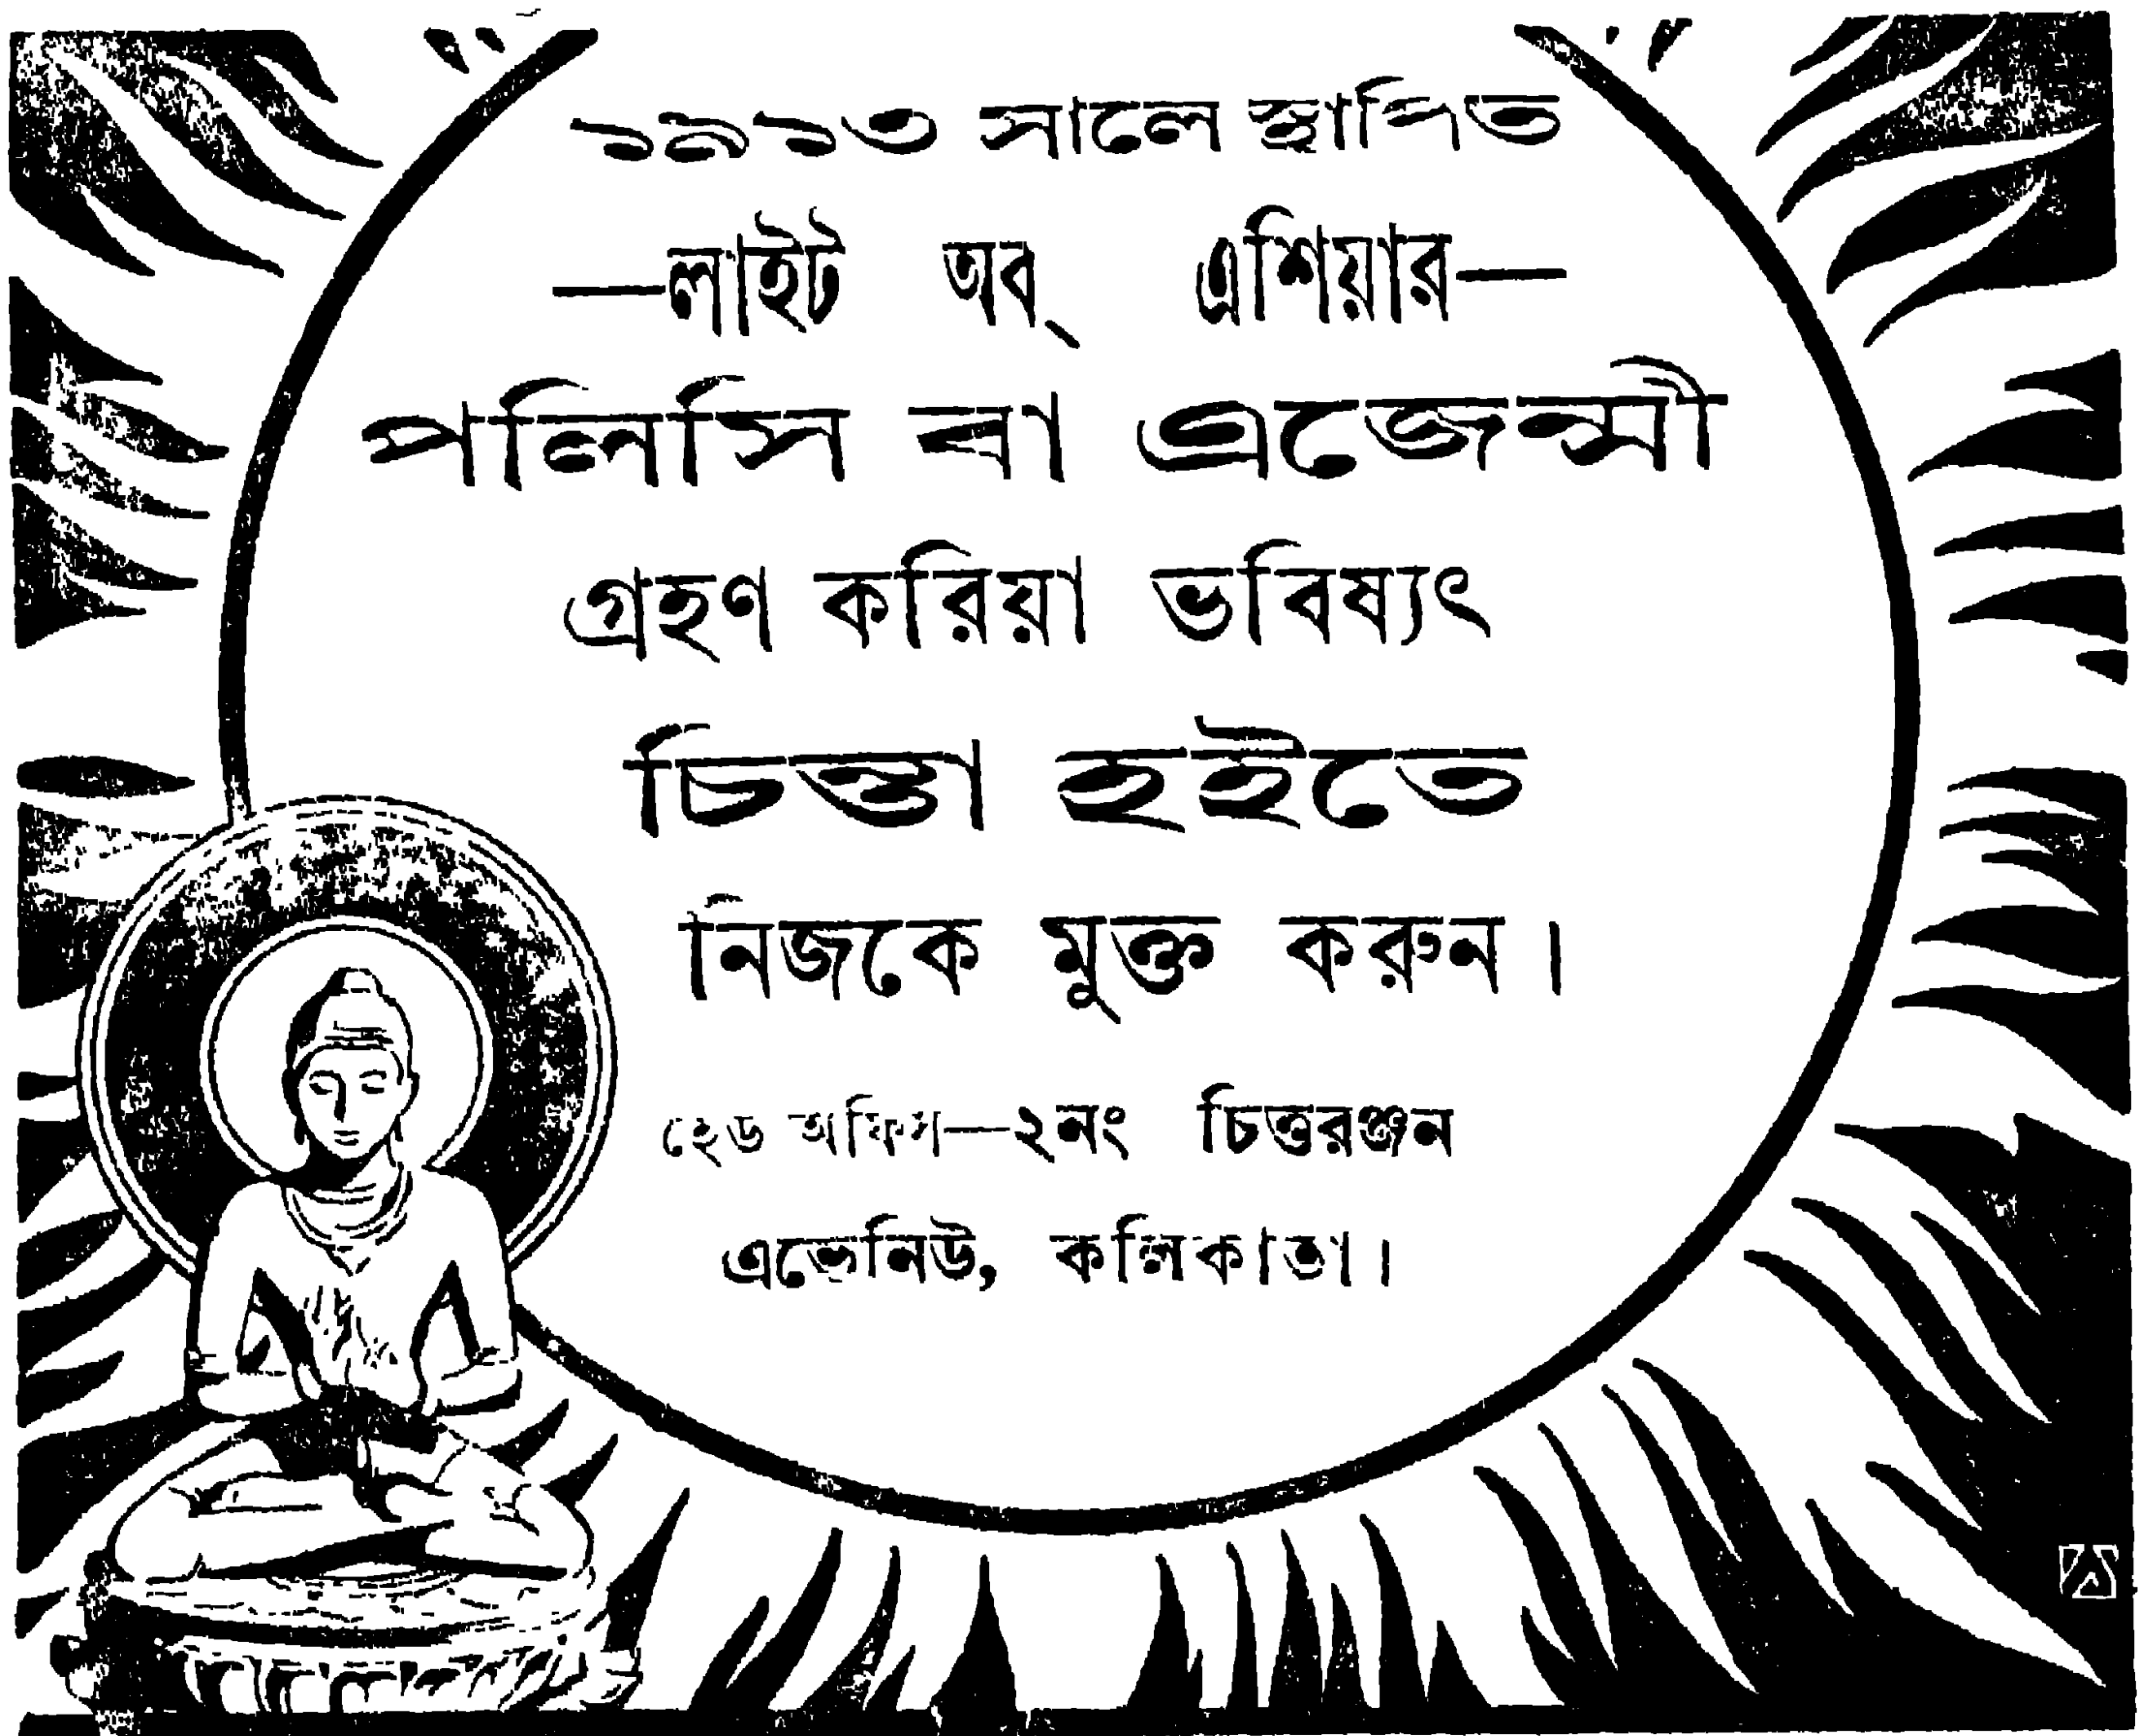 ১৯১৩ সালে স্থাপিত
—লাইট অব্ এশিয়ার—
পলিসি বা এজেন্সী
গ্রহণ করিয়া ভবিষ্যৎ
চিন্তা হইতে
নিজকে মুক্ত করুন।
হেড অফিস—২নং চিত্তরঞ্জন
এভেনিউ, কলিকাতা।